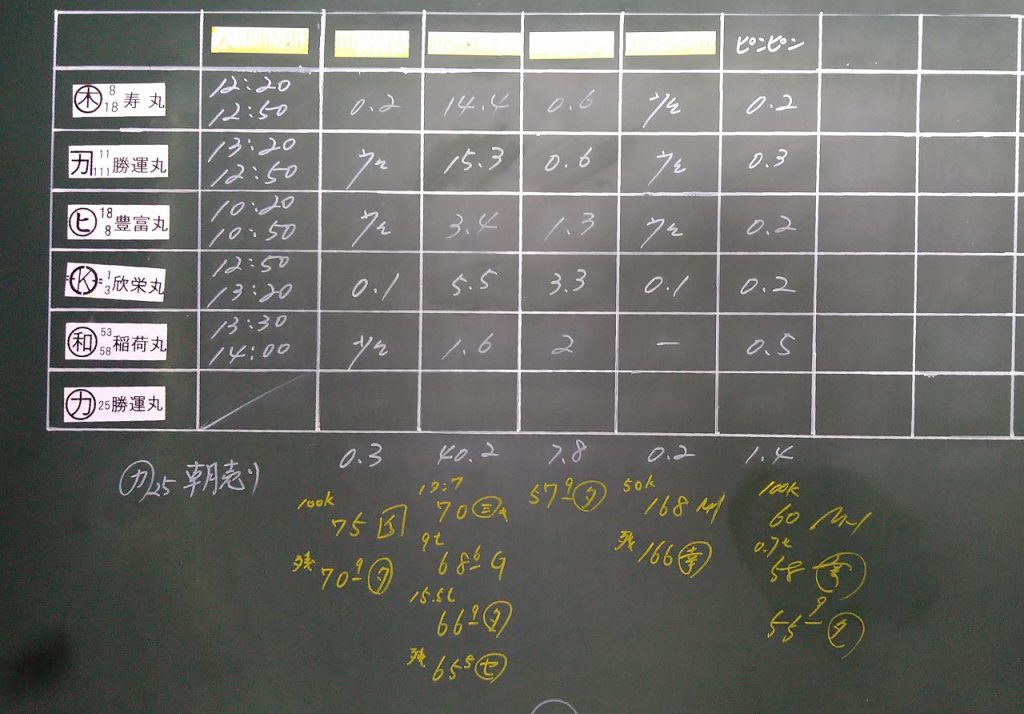 ピンピン
木 8 18 寿丸 12:20 12:50 0.2 14.4 0.6 ケン 0.2
カ 11 111 勝運丸 13:20 12:50 ケン 15.3 0.6 ケン 0.3
ヒ 18 8 豊富丸 10:20 10:50 ケン 3.4 1.3 ケン 0.2
K 1 3 欣栄丸 12:50 13:20 0.1 5.5 3.3 0.1 0.2
和 53 58 稲荷丸 13:30 14:00 ケン 1.6 2 ー 0.5
カ 25 勝運丸
0.3 40.2 7.8 0.2 1.4
カ 25 朝売り
100K
75
残 70 9 タ
70 三
9t
68 6 G
15.5t
66 9 タ
残 65 5 セ
57 9 タ
50K
168
残 166 幸
100K
60
0.7t
58
55 9 タ